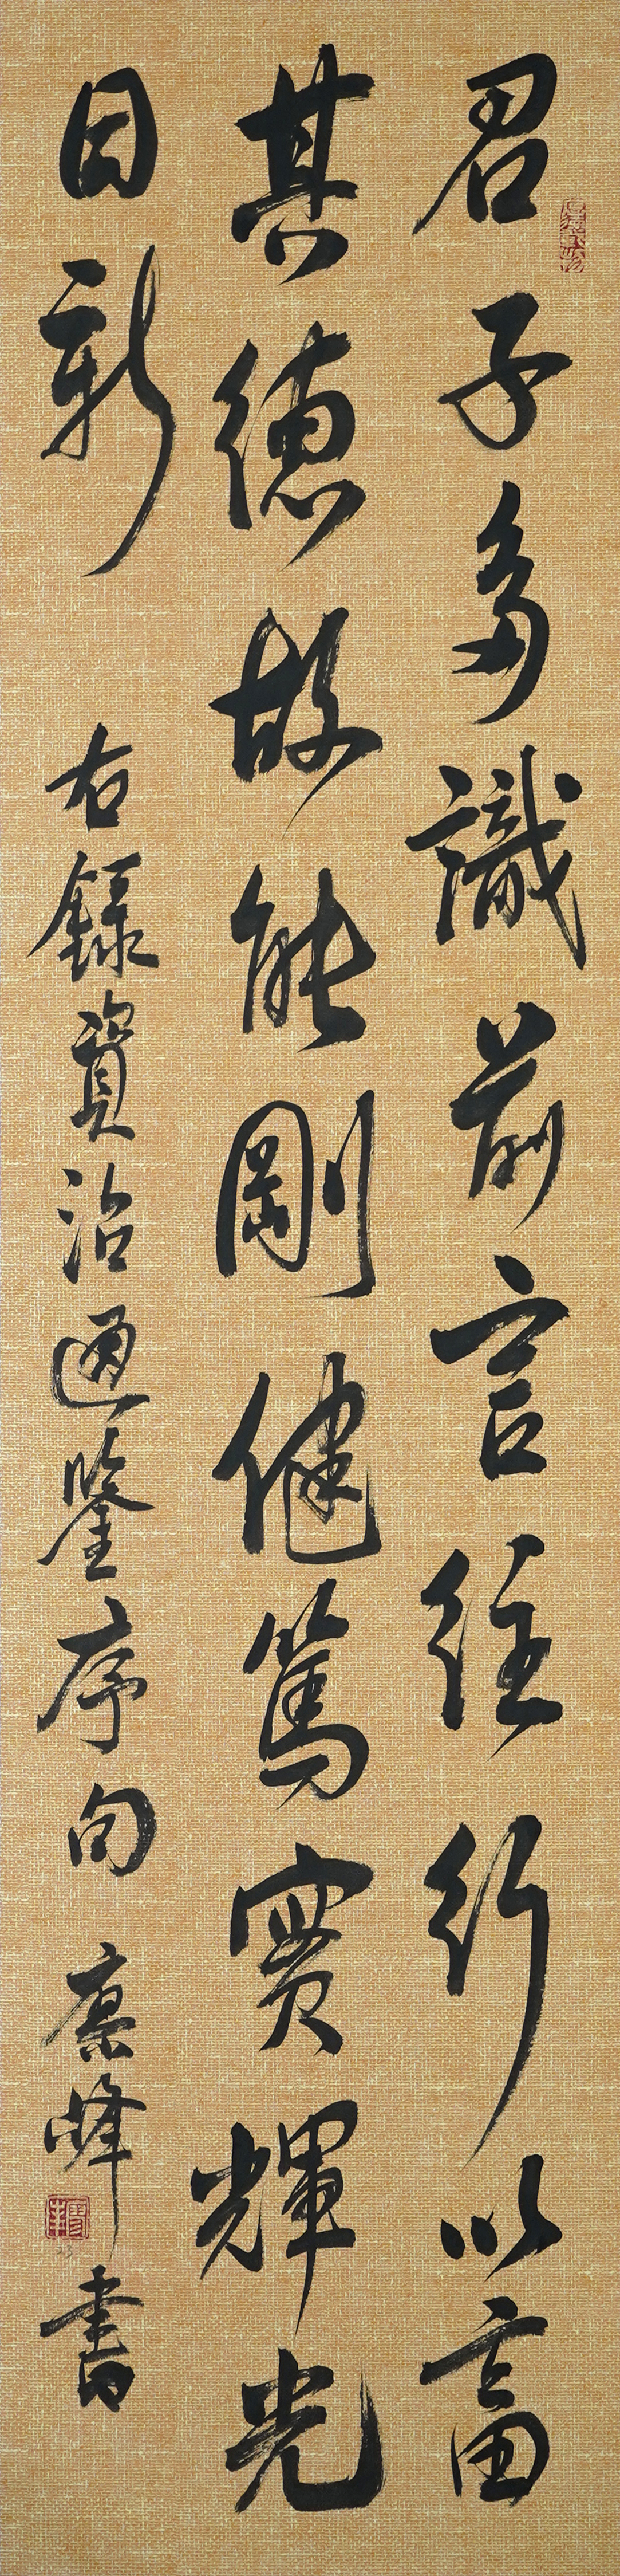 君子多識前言往行以畜
其德故能剛健篤實輝光
日新
右錄資治通鑒序句 凛峰書